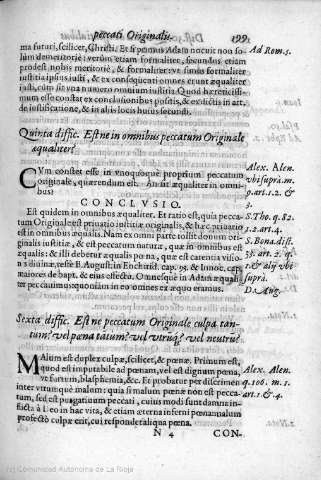 peccati Originalis. 199.
ma futuri, scilicet, Christi. Et si primus Adam nocuit non so
lùm demeritoriè: verùm etiam formaliter, secundus etiam
prodest nobis meritoriè, & formaliter: vt simus formaliter
iustitia ipsius iusti, & ex consequenti omnes erunt æqualiter
iusti, cùm sit vna numero omnium iustitia. Quod hæreticissi-
mum esse constat ex conclusionibus positis, & ex dictis in art.
de iustificatione, & in aliis locis huius secundi.
Ad Rom. 5.
Quinta diffic. Est ne in omnibus peccatum Originale
æqualiter?
CVm constet esse in vnoquoque proprium peccatum
originale, quærendum est. An sit æqualiter in omni-
bus?
Alex. Alen.
vbi supra m.
5. art. 1. 2. &
3.
CONCLVSIO.
Est quidem in omnibus æqualiter. Et ratio est, quia pecca-
tum Originale est priuatio iustitiæ originalis, & hæc priuatio
est in omnibus æqualis. Nam ex omni parte tollit donum ori-
ginalis iustitiæ, & est peccatum naturæ, quæ in omnibus est
æqualis: & illi debetur æqualis pœna, quæ est carentia visio-
nis diuinæ, teste E. August. in Enchirid. cap. 93. & Innoc. cap.
maiores de bapt. & eius effectu. Omnesque in Adam æquali-
ter peccauimus, quoniam in eo omnes ex æquo eramus.
S. Tho. q. 82.
1. 2. art. 4.
S. Bona. dist.
33. art. 2. q.
1. & alij vbi
suprà.
D. Aug.
Sexta diffic. Est ne peccatum Originale culpa tan-
tum? vel pœna tantum? vel vtrumq;? vel neutrum?
MAlum est duplex culpæ, scilicet, & pœnæ. Primum est,
quod est imputabile ad pœnam, vel est dignum pœna,
vt furtum, blasphemia, &c. Et probatur per discrimen
inter vtrumque malum: quia si malum pœnæ non est pecca-
tum, sed est purgatiuum peccati, cuius modi sunt damna in-
flicta à Deo in hac vita, & etiam æterna inferni pœna: malum
profectò culpæ erit, cui respondet pœna.
Alex. Alen.
q. 106. m. 1.
art. 1. & 4.
N 4 CON-
(c) Comunidad Autónoma de La Rioja